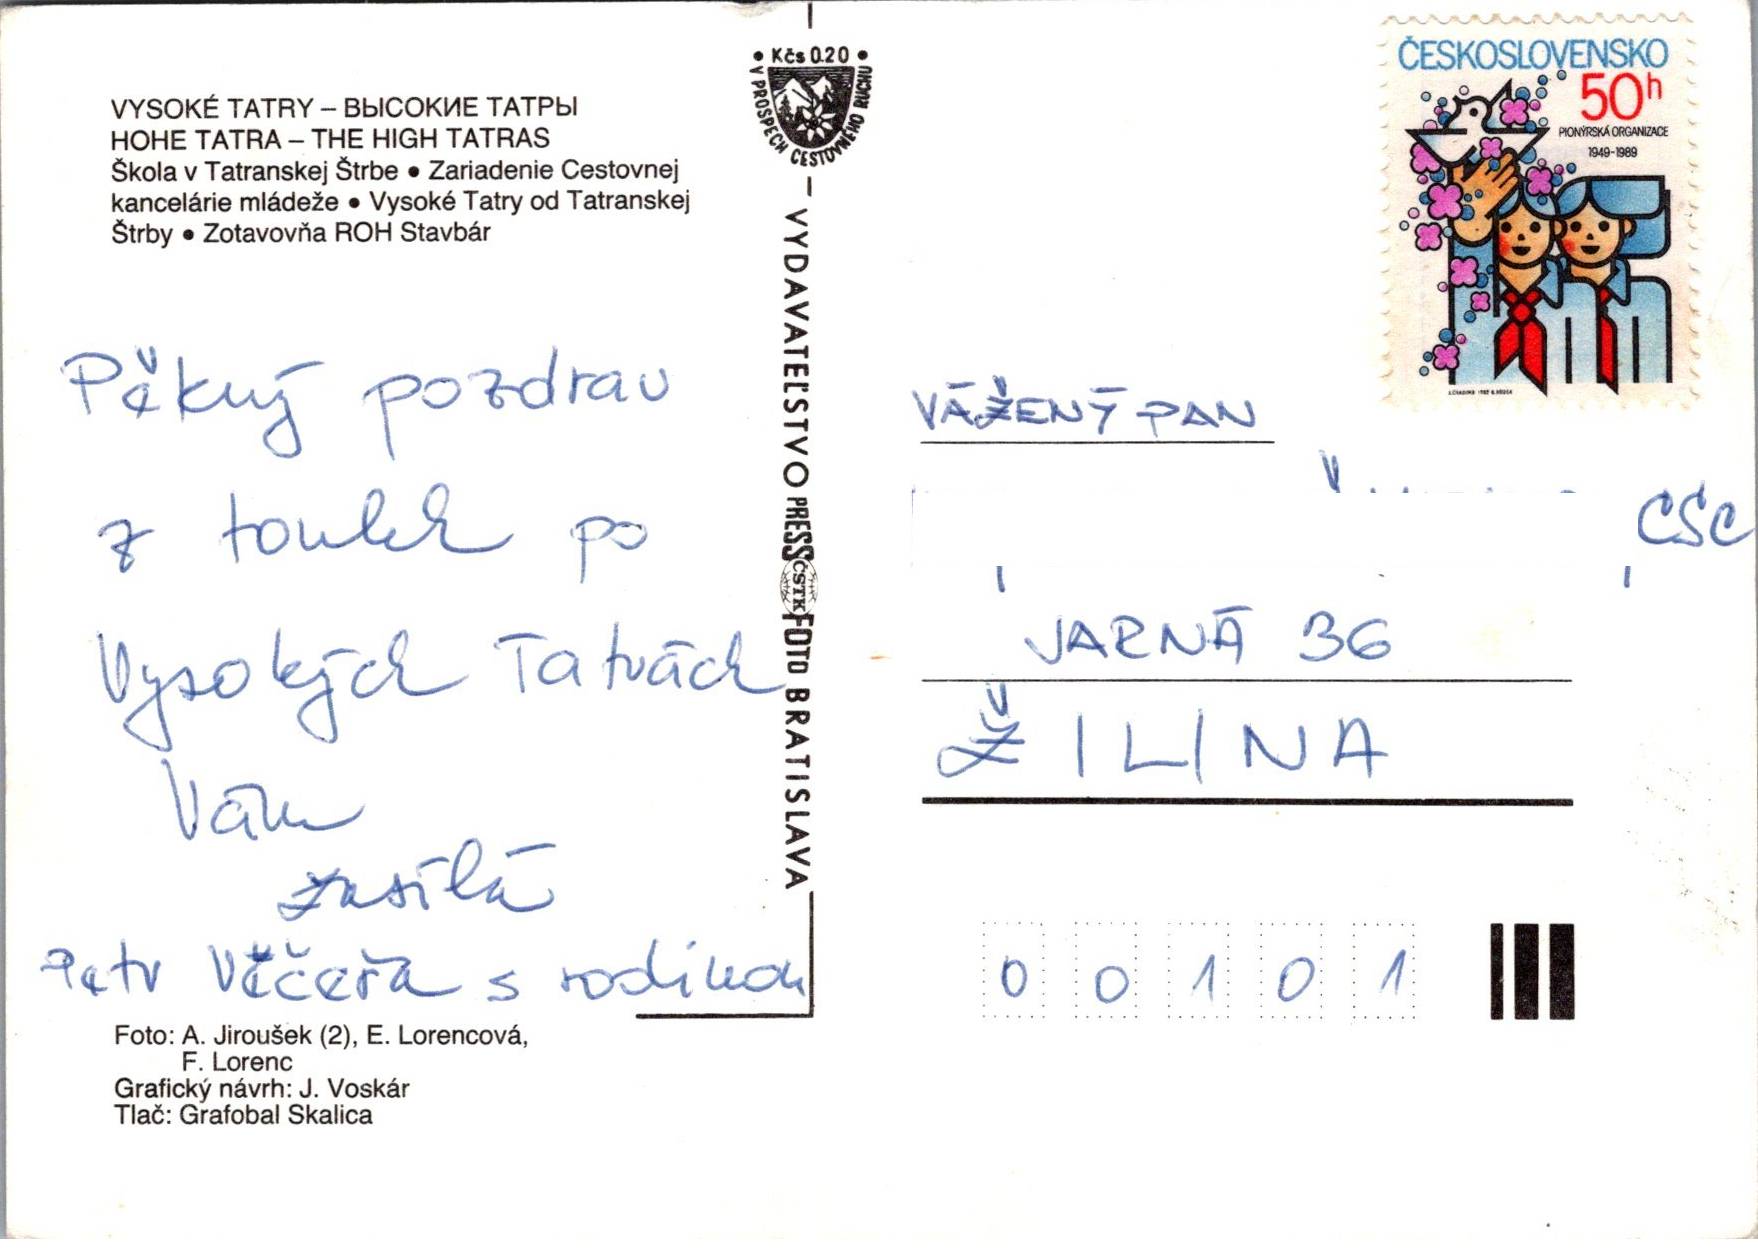 VYSOKÉ TATRY – ВЫСОКИЕ ТАТРЫ
HOHE TATRA – THE HIGH TATRAS
Škola v Tatranskej Štrbe • Zariadenie Cestovnej
kancelárie mládeže • Vysoké Tatry od Tatranskej
Štrby • Zotavovňa ROH Stavbár
Pěkný pozdrav
z toulek po
Vysokých Tatrách
Vám
zasílá
Petr Věčeřa s rodinou
Foto: A. Jiroušek (2), E. Lorencová,
F. Lorenc
Grafický návrh: J. Voskár
Tlač: Grafobal Skalica
• Kčs 0.20 •
V PROSPECH CESTOVNÉHO RUCHU
VYDAVATEĽSTVO PRESSFOTO BRATISLAVA
ČSTK
ČESKOSLOVENSKO
50h
PIONÝRSKÁ ORGANIZACE
1949-1989
VÁŽENÝ PAN
CSC
JARNÁ 36
ŽILINA
00101